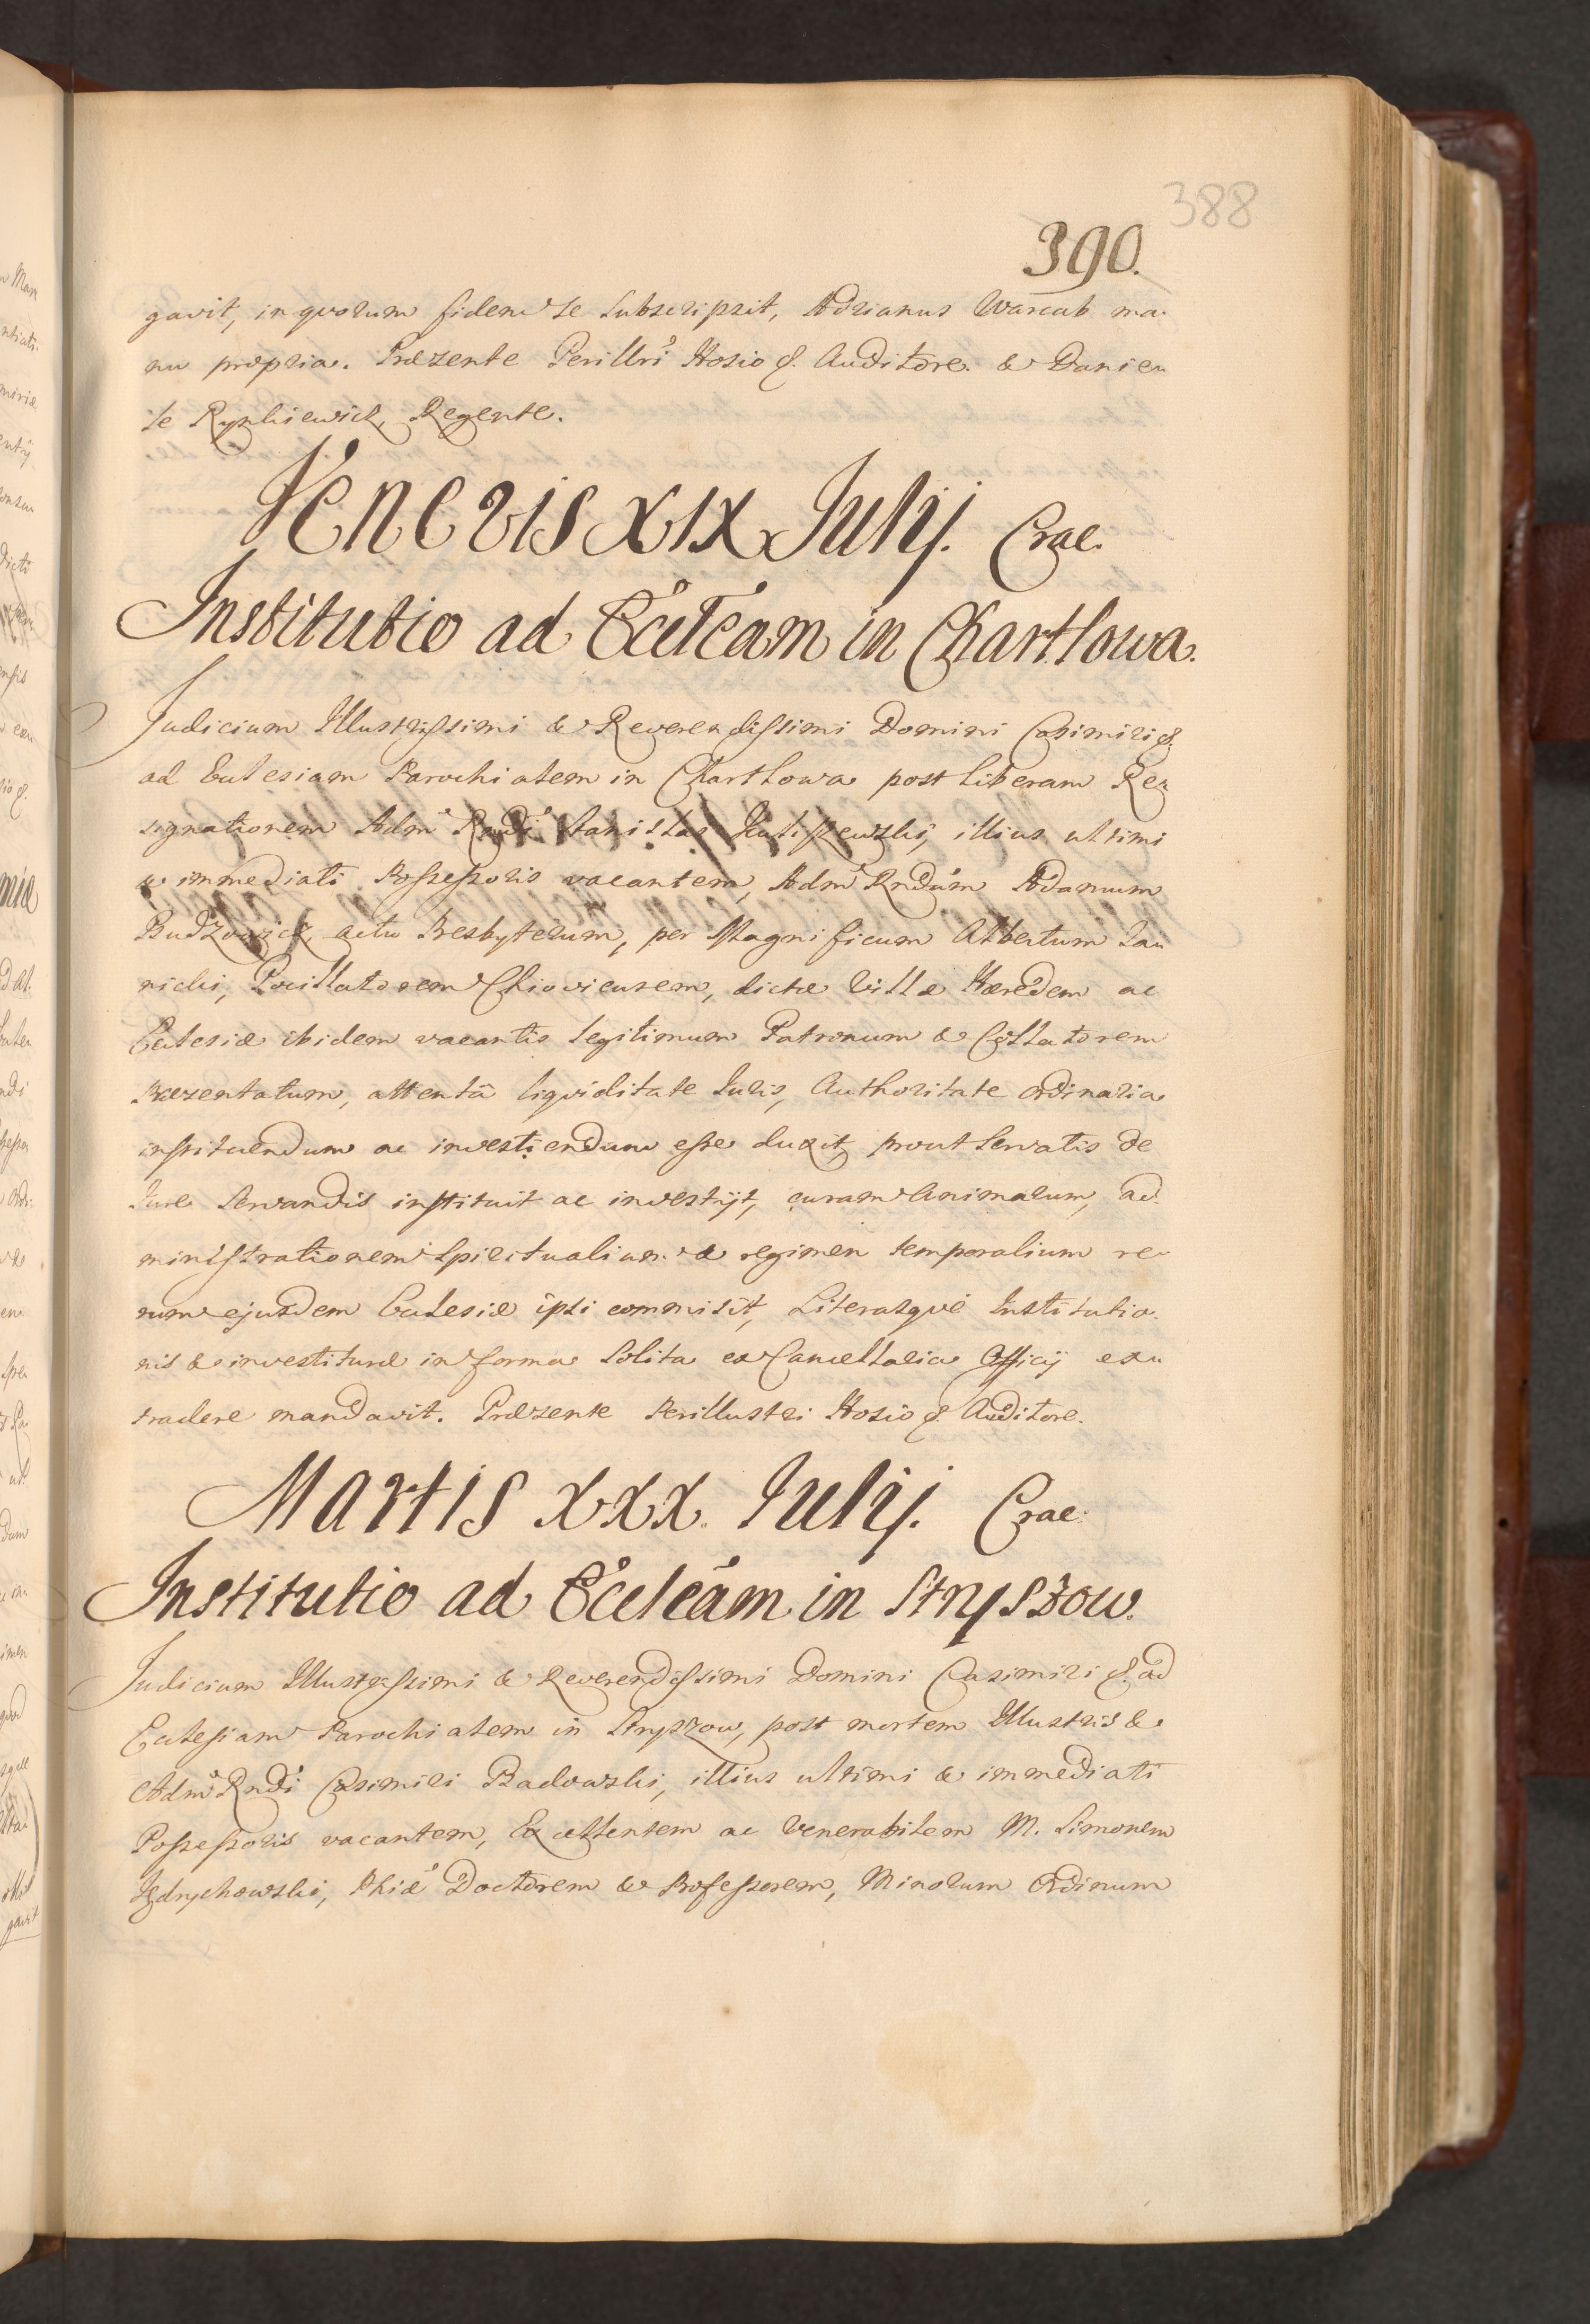 388
390.
gavit, in quorum fidem se subscripsit, Adrianus Warcab ma-
nu propria. Præsente Perillri Hosio &. Auditore. & Danie-
le Rynkiewicz, Regente.
Veneris XIX Julij. Crac.
Institutio ad Eccleam in Charłłowa.
Judicium Illustrissimi & Reverendissimi Domini Casimiri &.
ad Eclesiam Parochialem in Charłłowa post liberam Re-
signationem Adm Rndi Stanislai illius ultimi
& immediati Possessoris vacantem, Adm Rndum Adamum
Budzowicz, actu Presbyterum, per Magnificum Albertum La-
nicki, Pocillatorem Chioviensem, dictæ Villæ Hæredem ac
Eclesiæ ibidem vacantis legitimum Patronum & Collatorem
Præsentatum, attentâ liqviditate Iuris, Authoritate ordinaria
instituendum ac investiendum esse duxit, prout servatis de
Iure servandis instituit ac investijt, curam Animarum, ad-
ministrationem Spiritualium & regimen temporalium re-
rum ejusdem Eclesiæ ipsi commisit, Literasqve Institutio-
nis & investituræ in forma solita ex Cancellaria Officij ex-
tradere mandavit. Præsente Perillustri Hosio &. Auditore.
Martis XXX. Julij. Crac.
Institutio ad Eccleam in Stryszow.
Judicium Illustrissimi & Reverendissimi Domini Casimiri &. ad
Eclesiam Parochialem in Stryszow, post mortem Illustris &
Adm Rndi Casimiri Badowski, illius ultimi & immediati
Possessoris vacantem, Excellentem ac Venerabilem M. Simonem
Jędrychowski, Phiæ Doctorem & Professorem, Minorum Ordinum